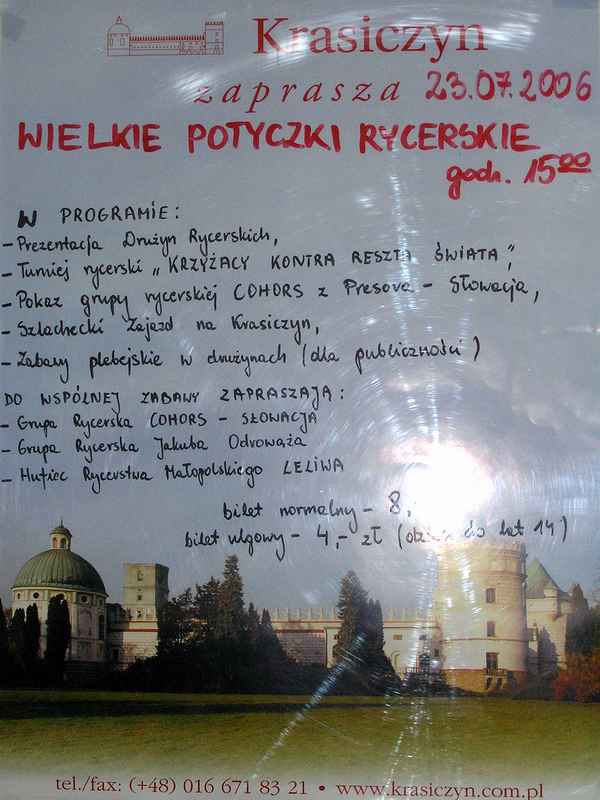 Krasiczyn
zaprasza 23.07.2006
WIELKIE POTYCZKI RYCERSKIE
godz. 15⁰⁰
W PROGRAMIE:
- Prezentacja Drużyn Rycerskich,
- Turniej rycerski „KRZYŻACY KONTRA RESZTA ŚWIATA",
- Pokaz grupy rycerskiej COHORS z Presova - Słowacja,
- Szlachecki Zajazd na Krasiczyn,
- Zabawy plebejskie w drużynach (dla publiczności)
DO WSPÓLNEJ ZABAWY ZAPRASZAJĄ:
- Grupa Rycerska COHORS - SŁOWACJA
- Grupa Rycerska Jakuba Odrowąża
- Hufiec Rycerstwa Małopolskiego LELIWA
bilet normalny - 8,
bilet ulgowy - 4,- zł (dzieci do lat 14)
tel./fax: (+48) 016 671 83 21 • www.krasiczyn.com.pl